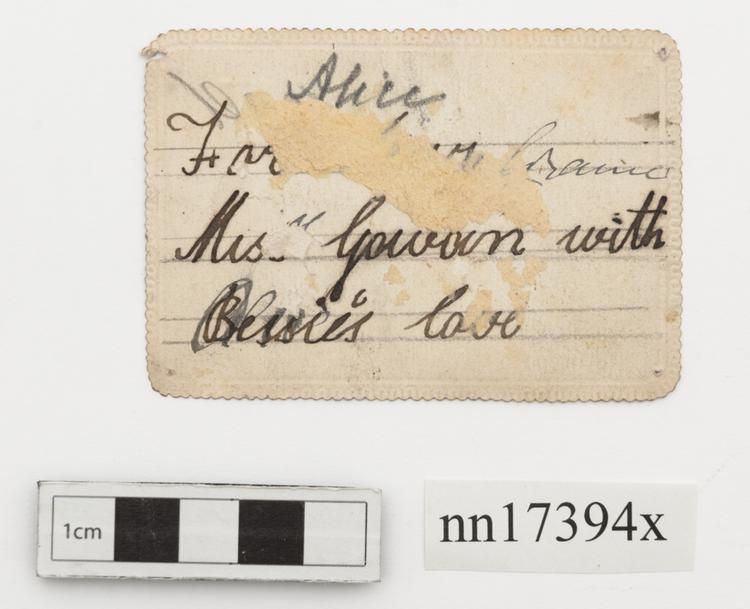 Alice
For
Miss Gowan with
Bessie's love
1cm
nn17394x